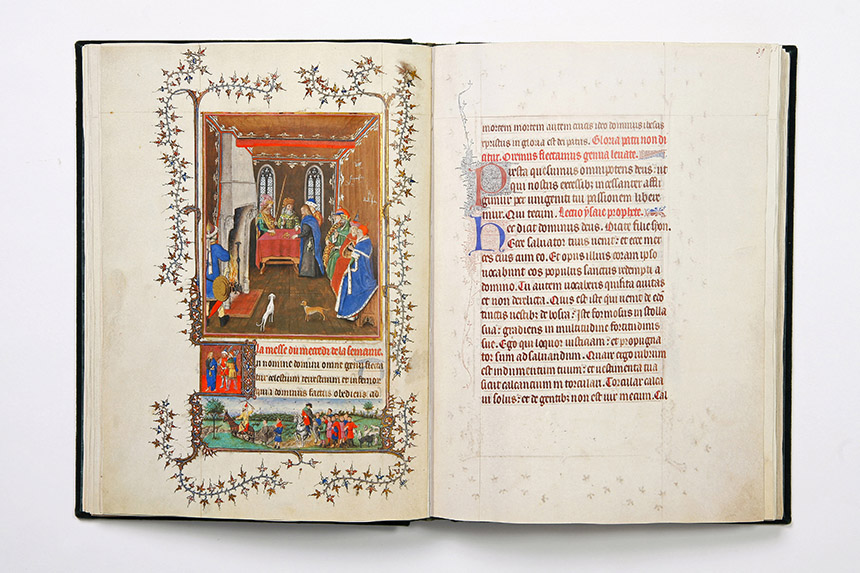 la messe du mecredi de la semaine.
in nomine domini omne genu flecta
tur celestium terrestrium et infernor
quia dominus factus obediens ad
mortem mortem autem crucis ideo dominus ihesus
xpristus in gloria est dei patris. Gloria patri non di
citur. Oremus flectamus genua leuate.
Presta quesumus omnipotens deus: ut
qui nostris excessibz incessanter affli
gimur per unigeniti tui passionem libere
mur. Qui tecum. Lectio ysaie prophete.
hec dicit dominus deus. Dicite filie syon.
Ecce saluator tuus uenit: et ecce mer
ces eius cum eo. Et opus illius coram ipso
uocabunt eos populus sanctus redempti a
domino. Tu autem uocaberis quisita ciuitas
et non derlicta. Quis est iste qui uenit de ed
tinctis uestibz de bosra? Iste formosus in stolla
sua: gradiens in multitudine fortitudinis
sue. Ego qui loquor iusticiam: et propugna
tor sum ad saluandum. Quare ergo rubrum
est indumentum tuum? et uestimenta tua
sicut calcantium in torculari. Torcular calca
ui solus: et de gentibz non est uir mecum. Cal